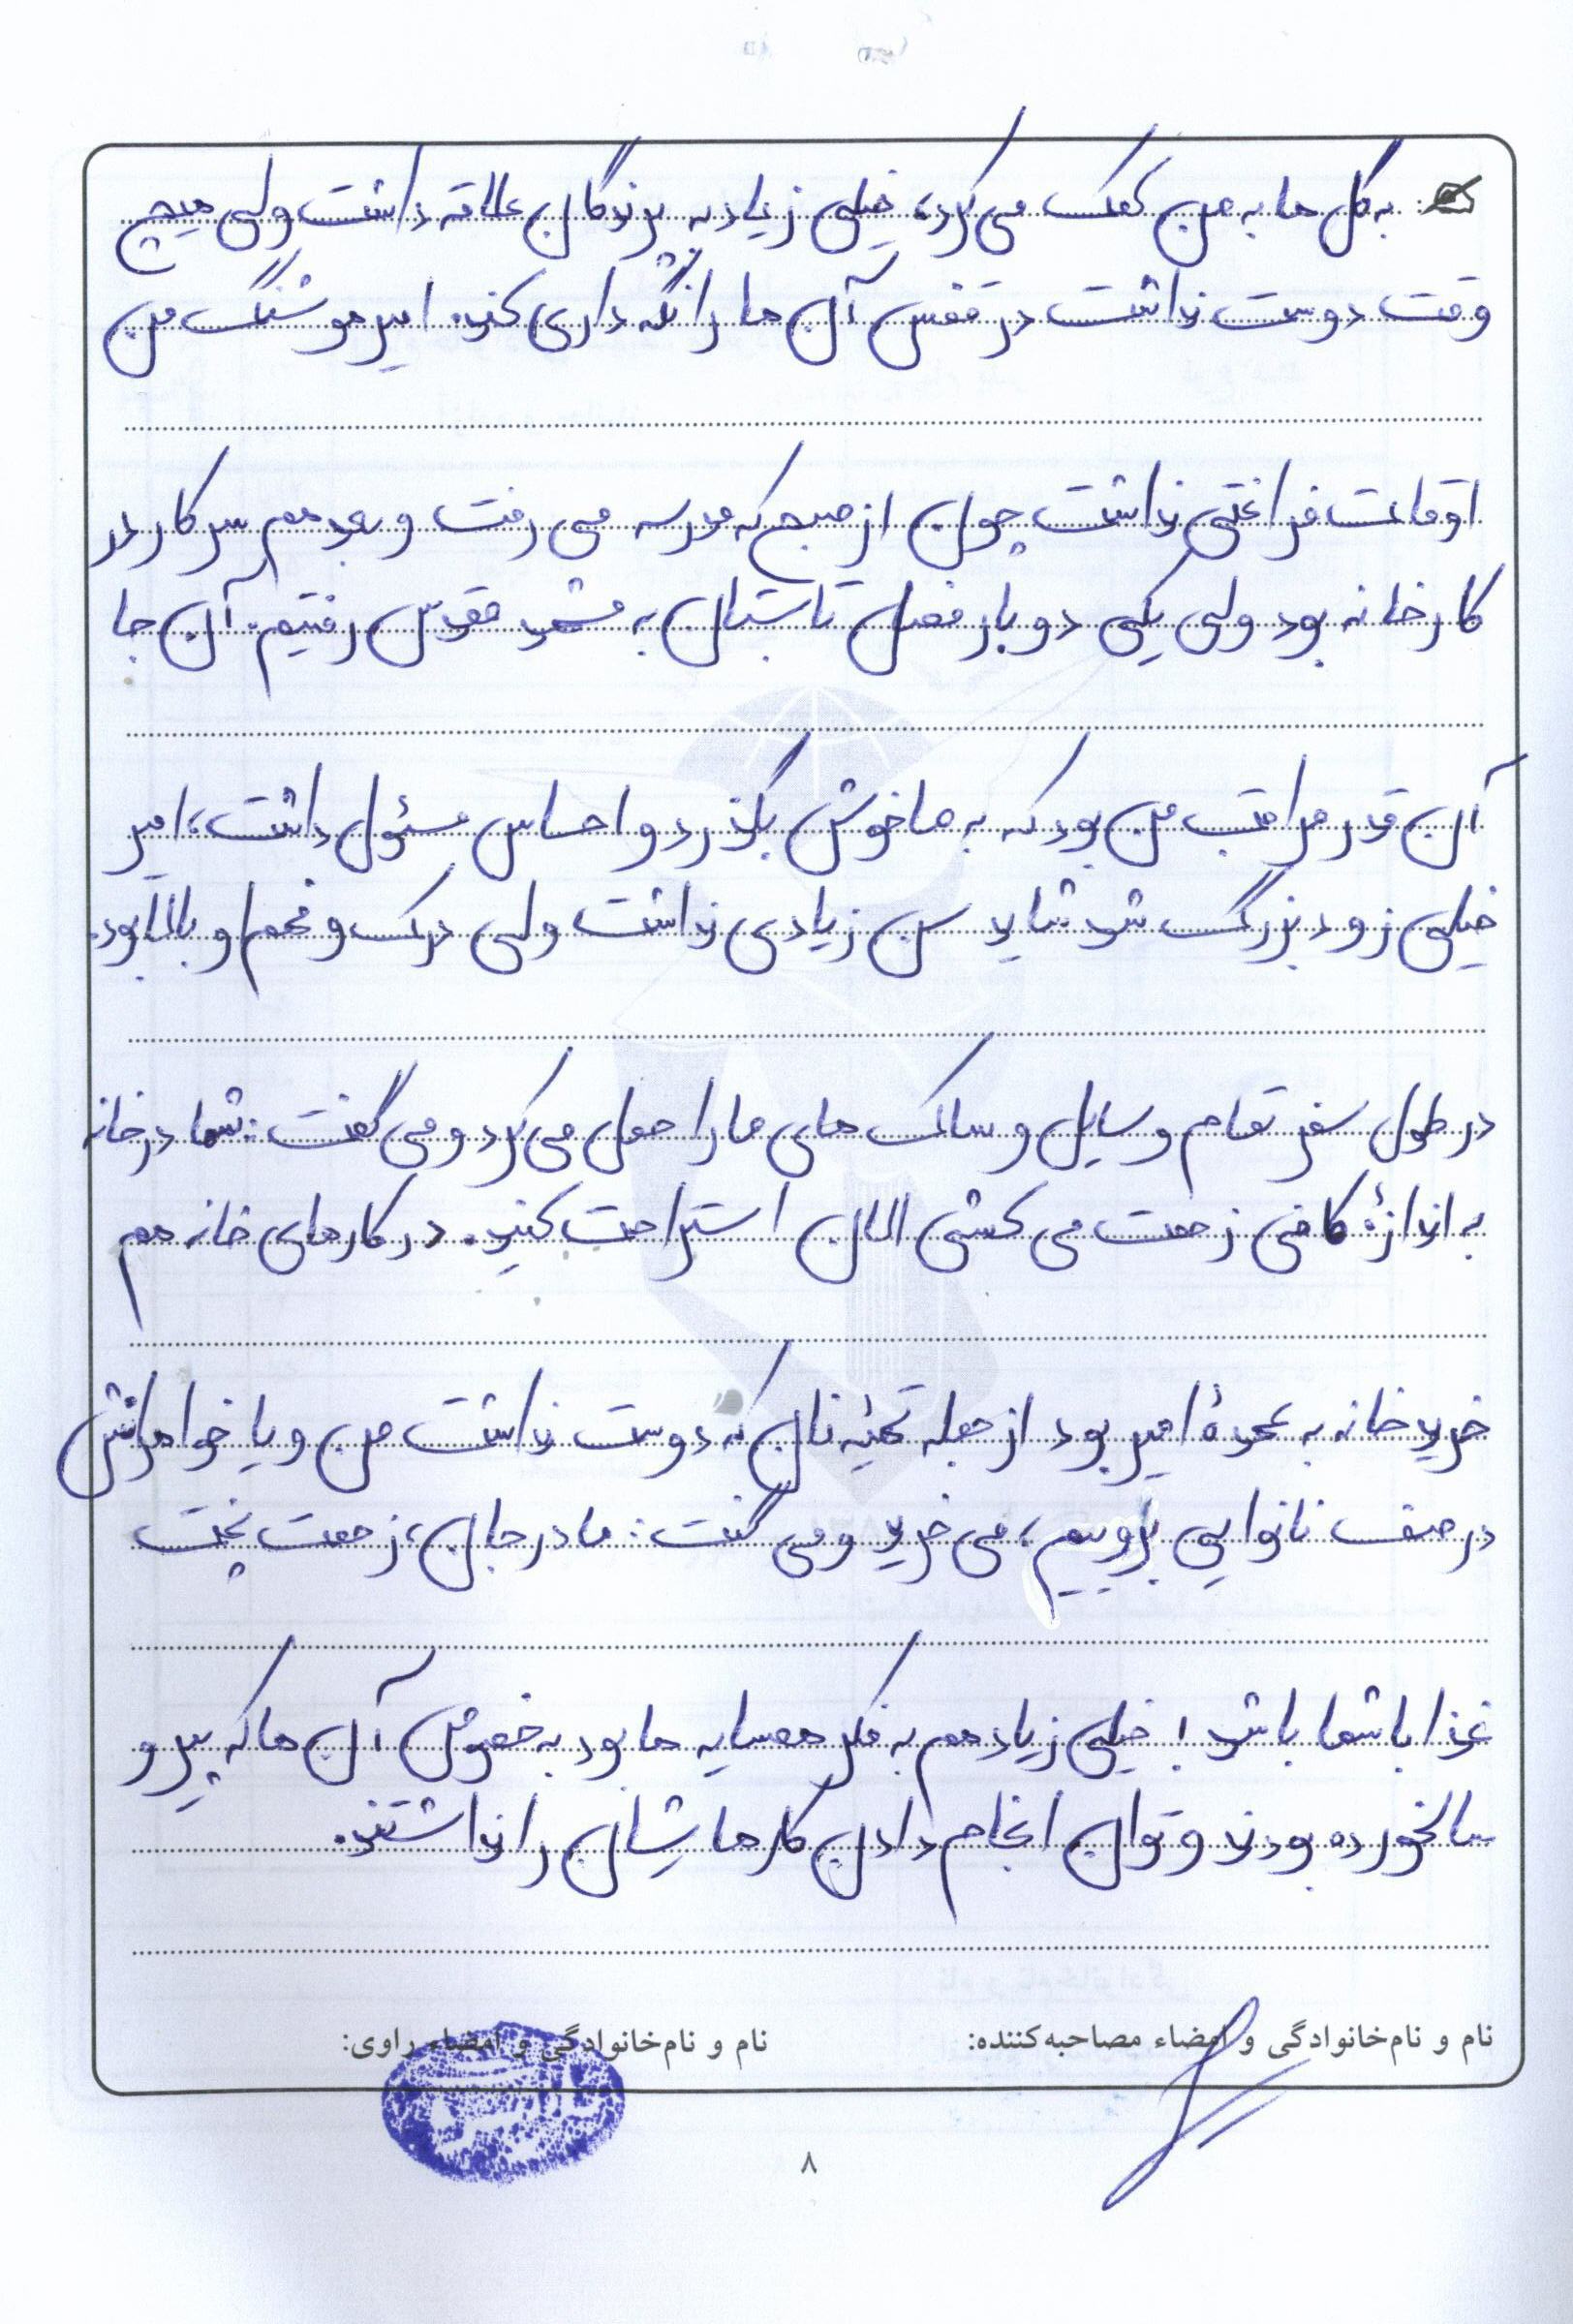 به گل ها به من کمک می کرد، خیلی زیاد به پرندگان علاقه داشت ولی هیچ
وقت دوست نداشت در قفس آن ها را نگه داری کند. امیر هوشنگ من
اوقات فراغتی نداشت چون از صبح که مدرسه می رفت و بعد هم سر کار در
کارخانه بود ولی یکی دو بار فصل تابستان به مشهد مقدس رفتیم. آن جا
آن قدر مراقب من بود که به ما خوش بگذرد و احساس مسئول داشت، امیر
خیلی زود بزرگ شد شاید سن زیادی نداشت ولی درک و فهم او بالا بود.
در طول سفر تمام وسایل و ساک های ما را حمل می کرد و می گفت: شما در خانه
به اندازهٔ کافی زحمت می کشی الان استراحت کنید. در کارهای خانه هم
خرید خانه به عهدهٔ امیر بود از جمله تهیهٔ نان که دوست نداشت من و یا خواهرانش
در صف نانوایی برویم، می خرید و می گفت: مادر جان، زحمت پخت
غذا با شما باشد! خیلی زیاد هم به فکر همسایه ها بود به خصوص آن ها که پیر و
سالخورده بودند و توان انجام دادن کارهایشان را نداشتند.
نام و نام‌خانوادگی و امضاء مصاحبه‌کننده: نام و نام‌خانوادگی و امضاء راوی:
۸